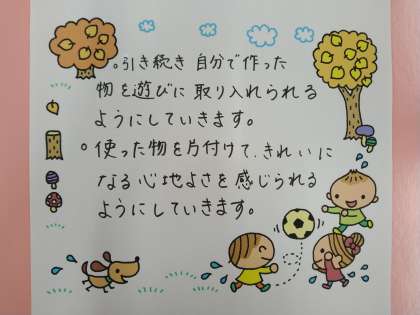 。引き続き 自分で作った
物を遊びに取り入れられる
ようにしていきます。
。使った物を片付けて、きれいに
なる心地よさを感じられる
ようにしていきます。